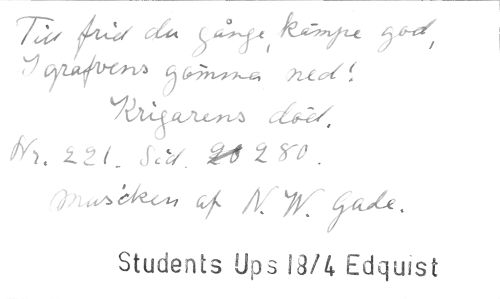 Till frid du gånge, kämpe god,
I grafvens gömma ned!
Krigarens död.
Nr. 221. Sid. 280.
Musiken af N. W. Gade.
Students Ups 18/4 Edquist